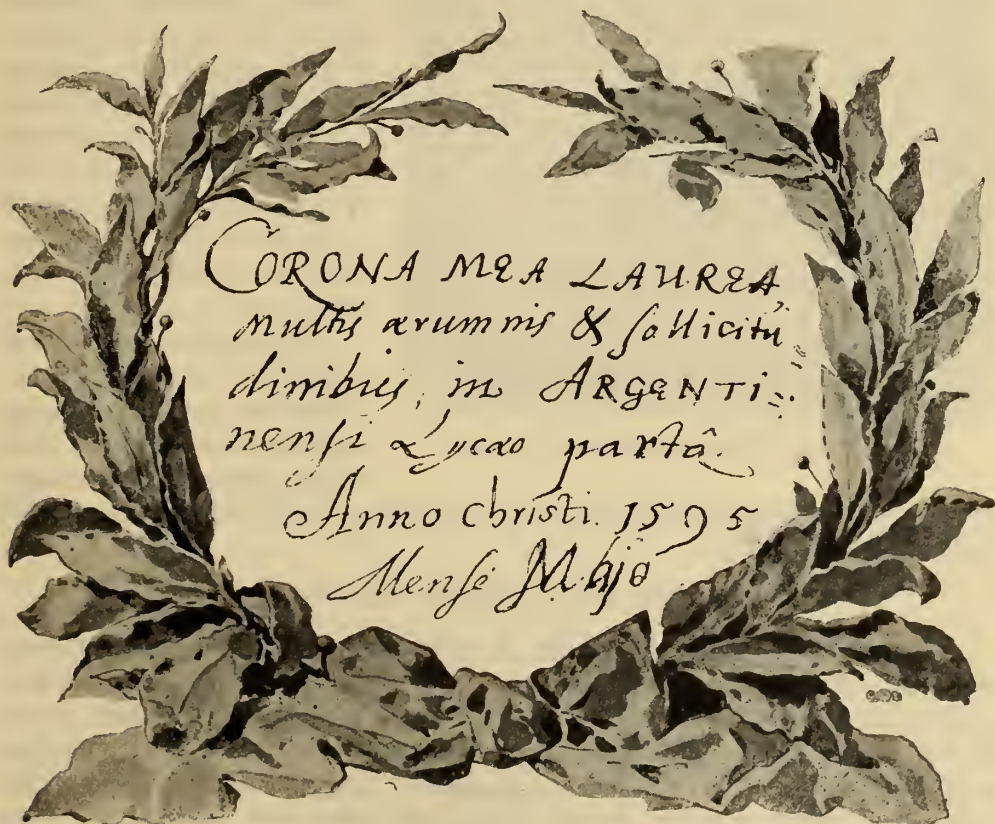 CORONA MEA LAUREA,
multis ærumnis & sollicitu
dinibus, in ARGENTI=
nensi Lycæo parta.
Anno Christi. 1595
Mense Majo